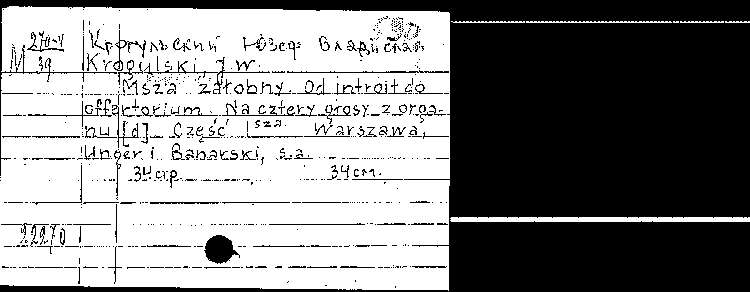 М 270-V
39
Крогульский Юзеф Владислав
Krogulski, J. W.
Msza żałobny. Od introit do
offertorium. Na cztery głosy z orga-
nu [d] Część 1sza. Warszawa,
Unger i Banarski, s.a.
34 стр. 34 см.
22270